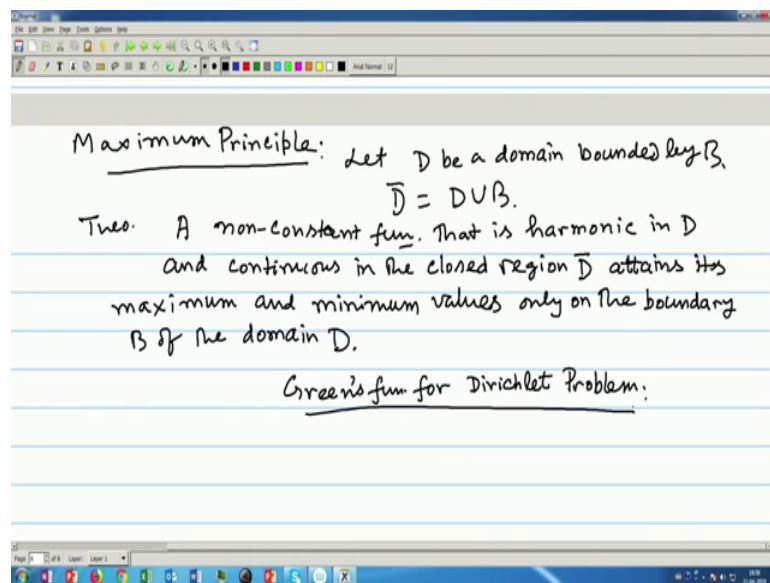 Journal
File Edit View Page Tools Options Help
Arial Normal 12
Maximum Principle: Let D be a domain bounded by B.
D̅ = D∪B.
Theo. A non-constant fun. That is harmonic in D
and continuous in the closed region D̅ attains its
maximum and minimum values only on the boundary
B of the domain D.
Green's fun. for Dirichlet Problem:
Page 8 of 8 Layer: Layer 1